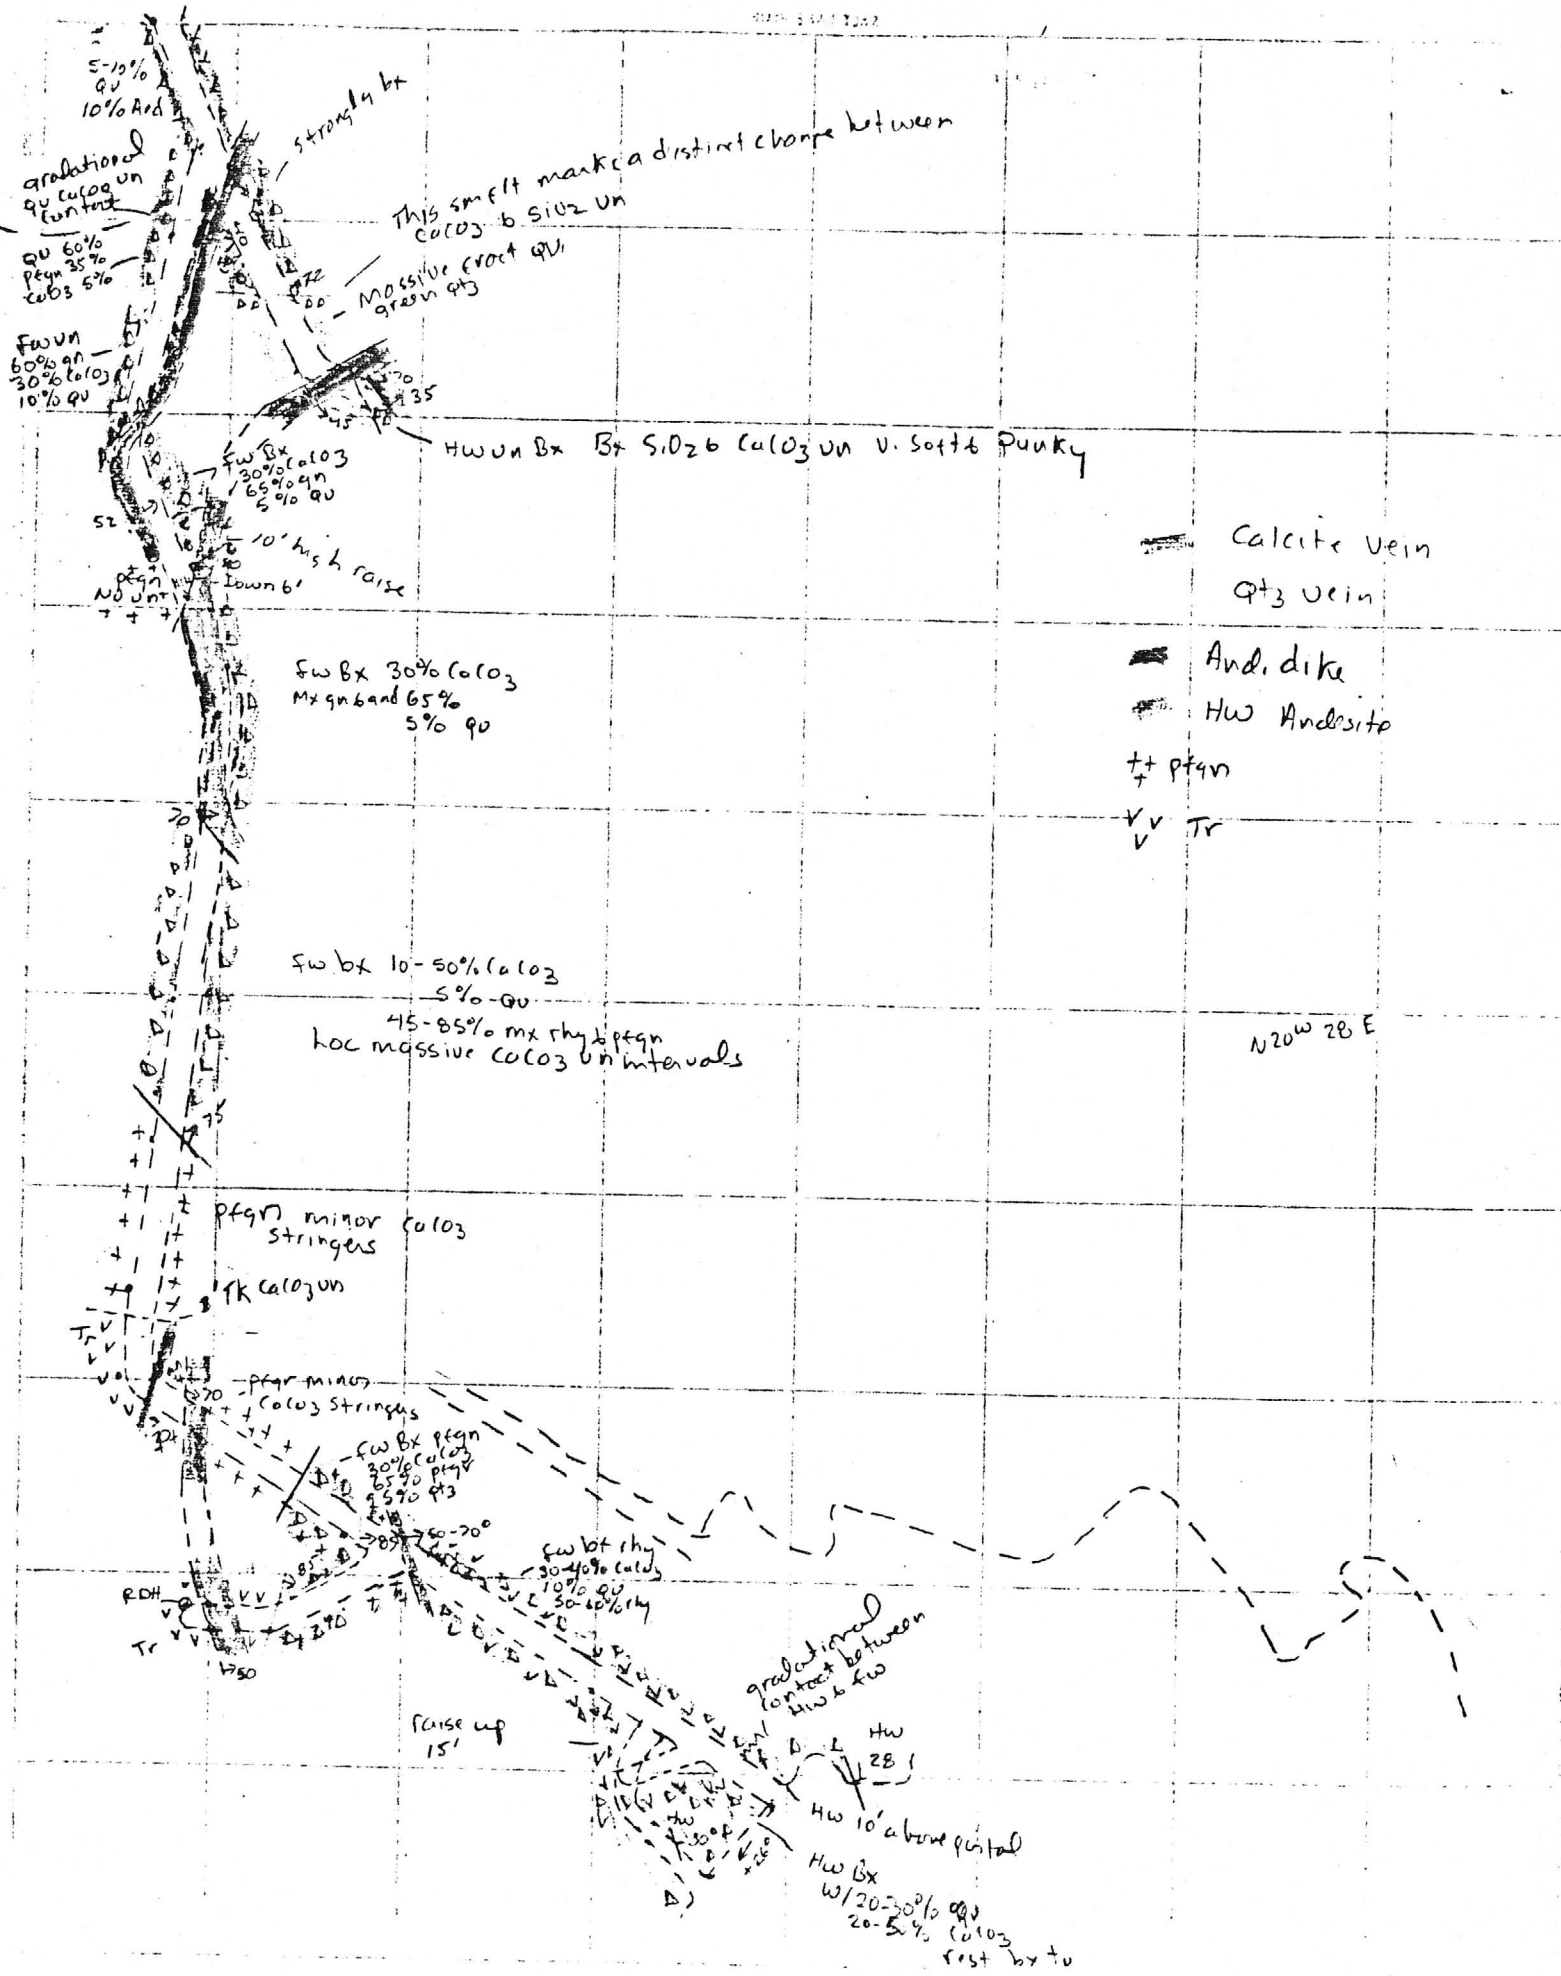 5-10%
QV
10% And
strongly bx
gradational
QV CaCO3 vn
contact
This smflt marks a distinct change between
CaCO3 & SiO2 vn
QV 60%
ptgn 35%
CaCO3 5%
72
Massive fract QV,
green qtz
FW vn
60% gn
30% CaCO3
10% QV
70
35
45
HW vn Bx Bx SiO2 & CaCO3 vn v. soft & Punky
FW Bx
30% CaCO3
65% gn
5% QV
52
10' high raise
Down 6'
ptgn
No vn
Calcite Vein
Qtz vein
And. dike
HW Andesite
ptgn
Tr
FW Bx 30% CaCO3
Mx gn band 65%
5% QV
70
FW bx 10-50% CaCO3
5% QV
45-85% mx rhy & ptgn
Loc massive CaCO3 vn intervals
N20W 28 E
75
ptgn minor CaCO3
stringers
TK CaCO3 vn
Tr
70
ptgn minor
CaCO3 Stringers
FW Bx ptgn
30% CaCO3
65% ptgn
5% qtz
85
50-70°
85
FW bx rhy
30-40% CaCO3
10% QV
50-60% rhy
RDH
Tr
50
gradational
contact between
HW & FW
raise up
15'
HW
28
HW
30°
HW 10' above portal
HW Bx
W/ 20-30% QV
20-50% CaCO3
rest bx tv